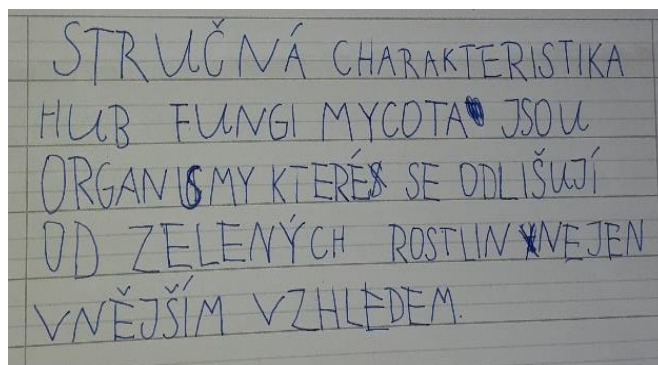 STRUČNÁ CHARAKTERISTIKA
HUB FUNGI MYCOTA JSOU
ORGANISMY KTERÉ SE ODLIŠUJÍ
OD ZELENÝCH ROSTLIN NEJEN
VNĚJŠÍM VZHLEDEM.